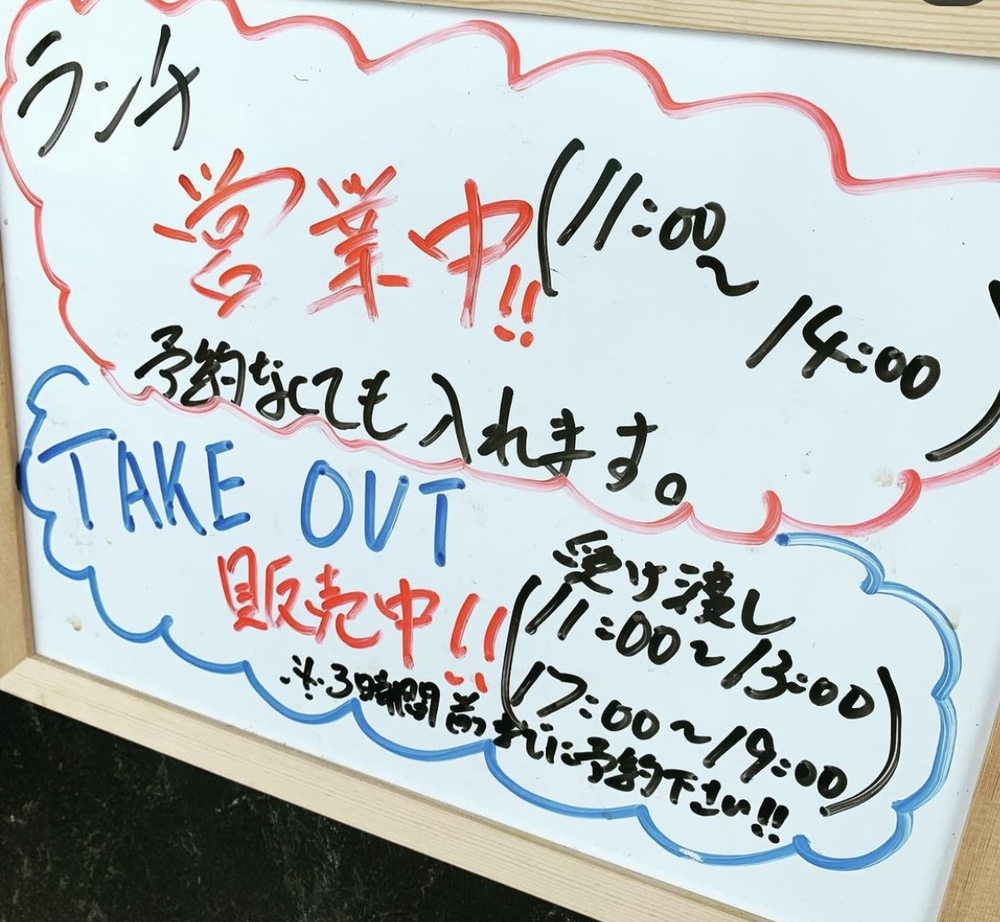 ランチ
営業中!! (11:00~
14:00)
予約なくても入れます。
TAKE OUT
販売中!!
受け渡し
(11:00~13:00
17:00~19:00)
※3時間前までに予約下さい!!